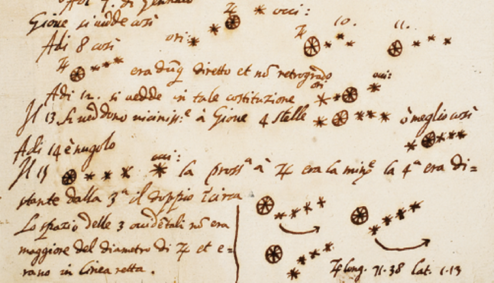 Adi 7. di Gennaio
Giove si vedde così ori: occi:
10. 11.
Adi 8 così
era dunq. diretto et nõ retrogrado
Adi 12. si vedde in tale costitutione
ori: occi:
Il 13 si veddono vicinissᵉ à Giove 4 stelle ò meglio così
Adi 14 è nugolo
Il 15 occi: la prossᵃ à ♃ era la minᵉ la 4ᵃ era di-
stante dalla 3ᵃ il doppio Ɩcirca
Lo spatio delle 3 occidẽtali nõ era
maggiore del diametro di ♃ et e-
rano in linea retta.
♃ long. 71.38 Lat. 1.13